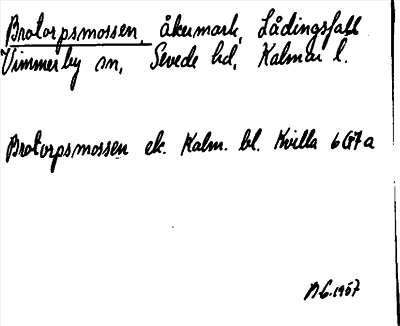 Brotorpsmossen, åkermark, Lådingsfall
Vimmerby sn, Sevede hd, Kalmar l.
Brotorpsmossen ek. Kalm. bl. Kvilla 6G7a
BG.1957